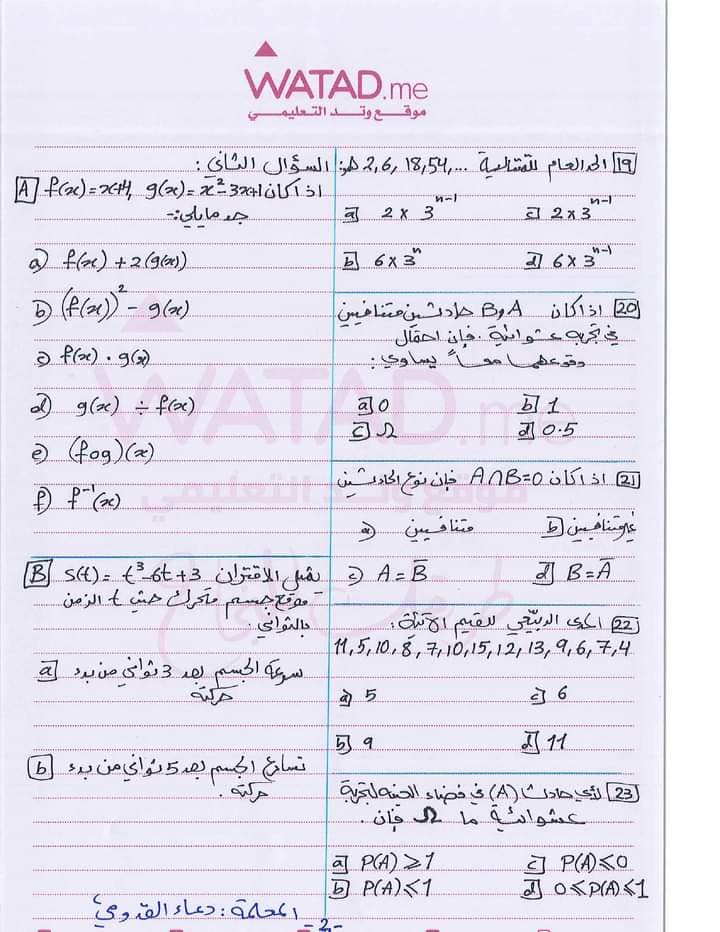 WATAD.me
موقع وتد التعليمي
19 الحد العام للمتتالية 2,6,18,54,... هو:
a 2 × 3^(n-1)
c 2 × 3^(n-1)
b 6 × 3^n
d 6 × 3^(n-1)
20 اذا كان A و B حادثين متنافيين
في تجربة عشوائية . فإن احتمال
وقوعهما معاً يساوي :
a 0
b 1
c Ω
d 0.5
21 اذا كان A∩B=0 فإن نوع الحادثين
a) متنافيين
b غير متنافيين
c) A = B̅
d B = A̅
22 المدى الربيعي للقيم الآتية :
11,5,10,8,7,10,15,12,13,9,6,7,4
a) 5
c 6
b 9
d 11
23 لأي حادث (A) في فضاء العينة لتجربة
عشوائية ما Ω فإن .
a P(A) ⩾ 1
c P(A) ⩽ 0
b P(A) ⩽ 1
d 0 ⩽ P(A) ⩽ 1
السؤال الثاني :
A اذا كان f(x) = x+4, g(x) = x²-3x+1
جد مايلي:-
a) f(x) + 2(g(x))
b) (f(x))² - g(x)
c) f(x) . g(x)
d) g(x) ÷ f(x)
e) (fog)(x)
f) f⁻¹(x)
B يمثل الاقتران S(t) = t³-6t+3
موقع جسم متحرك حيث t الزمن
بالثواني.
a سرعة الجسم بعد 3 ثواني من بدء
حركته
b تسارع الجسم بعد 5 ثواني من بدء
حركته .
المعلمة : دعاء القدومي
-2-